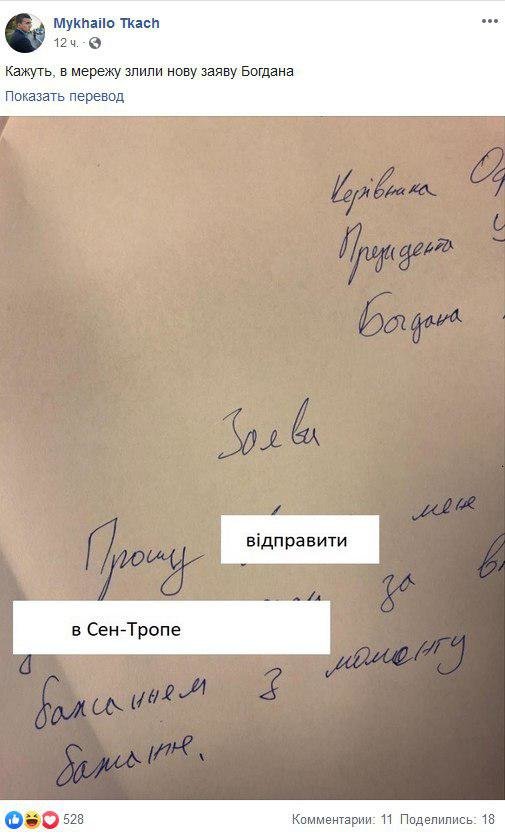 Mykhailo Tkach
12 ч.
Кажуть, в мережу злили нову заяву Богдана
Показать перевод
Керівника
Президента
Богдана
Заява
Прошу відправити мене
в Сен-Тропе за
бажанням з моменту
бажання.
528 Комментарии: 11 Поделились: 18